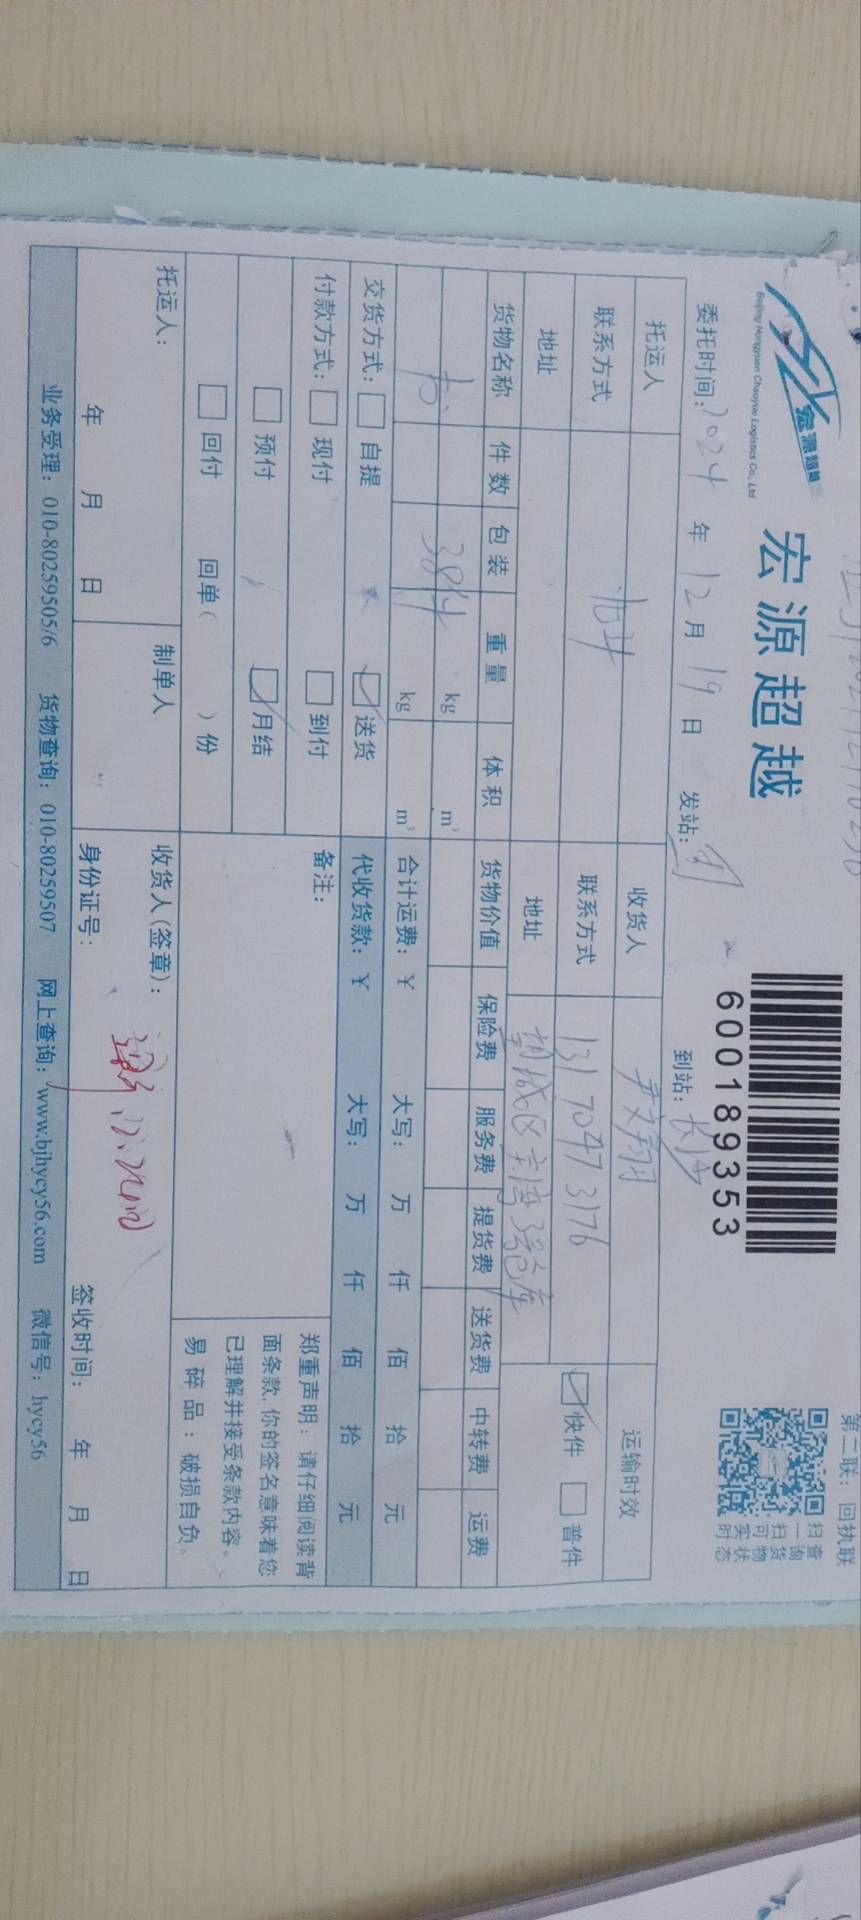 第二联：回执联
宏源超越
Beijing Hongyuan Chaoyue Logistics Co., Ltd
宏源超越
600189353
扫一扫可实时
查询货物状态
委托时间：2024年12月19日 发站： 到站：长沙
托运人 收货人 尹文翔 运输时效
联系方式 联系方式 131 7047 3176 快件 普件
地址 地址 望城区 3号仓库
货物名称 件数 包装 重量 体积 货物价值 保险费 服务费 提货费 送货费 中转费 运费
书 38件 kg m³
kg m³
合计运费：¥ 大写： 万 仟 佰 拾 元
交货方式： 自提 送货
代收货款：¥ 大写： 万 仟 佰 拾 元
付款方式： 现付 到付
备注：
预付 月结
回付 回单（ ）份
郑重声明：请仔细阅读背
面条款,你的签名意味着您
已理解并接受条款内容。
易碎品：破损自负。
托运人： 制单人 收货人(签章)：
年 月 日 身份证号： 签收时间： 年 月 日
业务受理：010-80259505/6 货物查询：010-80259507 网上查询：www.bjhycy56.com 微信号：hycy56